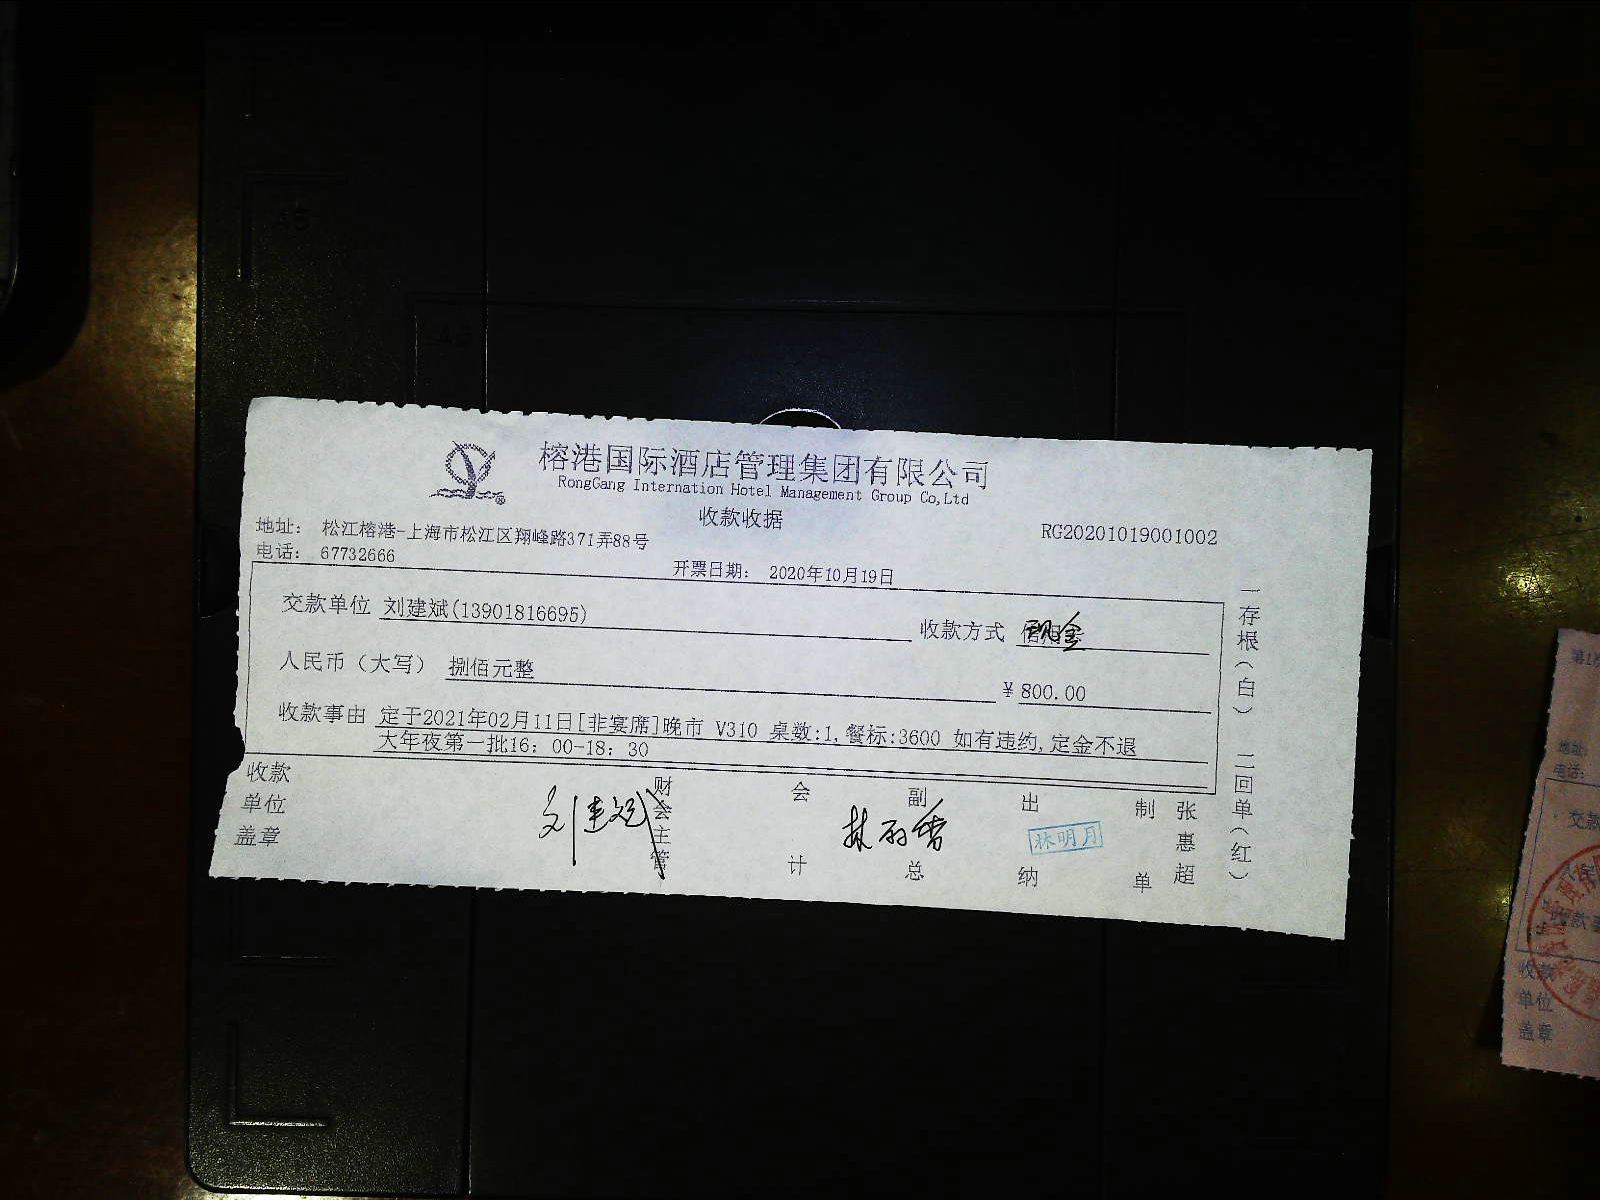 榕港国际酒店管理集团有限公司
RongGang Internation Hotel Management Group Co,Ltd
收款收据
地址: 松江榕港-上海市松江区翔峰路371弄88号
RG20201019001002
电话: 67732666
开票日期: 2020年10月19日
交款单位 刘建斌(13901816695)
收款方式 现金
人民币（大写） 捌佰元整
￥800.00
收款事由 定于2021年02月11日[非宴席]晚市 V310 桌数:1,餐标:3600 如有违约,定金不退
大年夜第一批16: 00-18: 30
收款单位盖章
刘建斌
财会主管
会计
副总
出纳
林明月
制单
张惠超
一存根(白) 二回单(红)
第1
地址:
电话:
交款
收款
单位
盖章